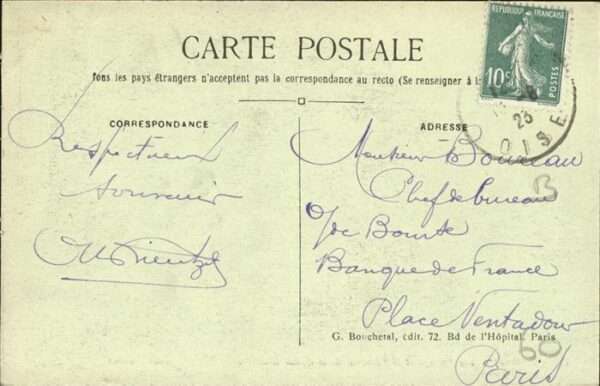 RÉPUBLIQUE FRANÇAISE
10c
POSTES
CARTE POSTALE
Tous les pays étrangers n'acceptent pas la correspondance au recto (Se renseigner à
CORRESPONDANCE
Respectueux
souvenir
ADRESSE
23
OISE
Monsieur
Chef de bureau
Banque de France
Place Ventadour
Paris
B
60
G. Bouchetal, édit. 72. Bd de l'Hôpital. Paris